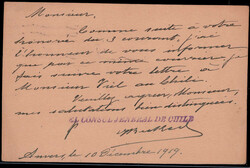 Monsieur,
Comme suite à votre
honorée du 3 courant, j'ai
l'honneur de vous informer
que par ce même courrier, je
fais suivre votre lettre à
Monsieur Viel au Chili.
Veuillez agréer, Monsieur,
mes salutations bien distinguées.
EL CONSUL GENERAL DE CHILE
Anvers, le 10 Décembre 1909.